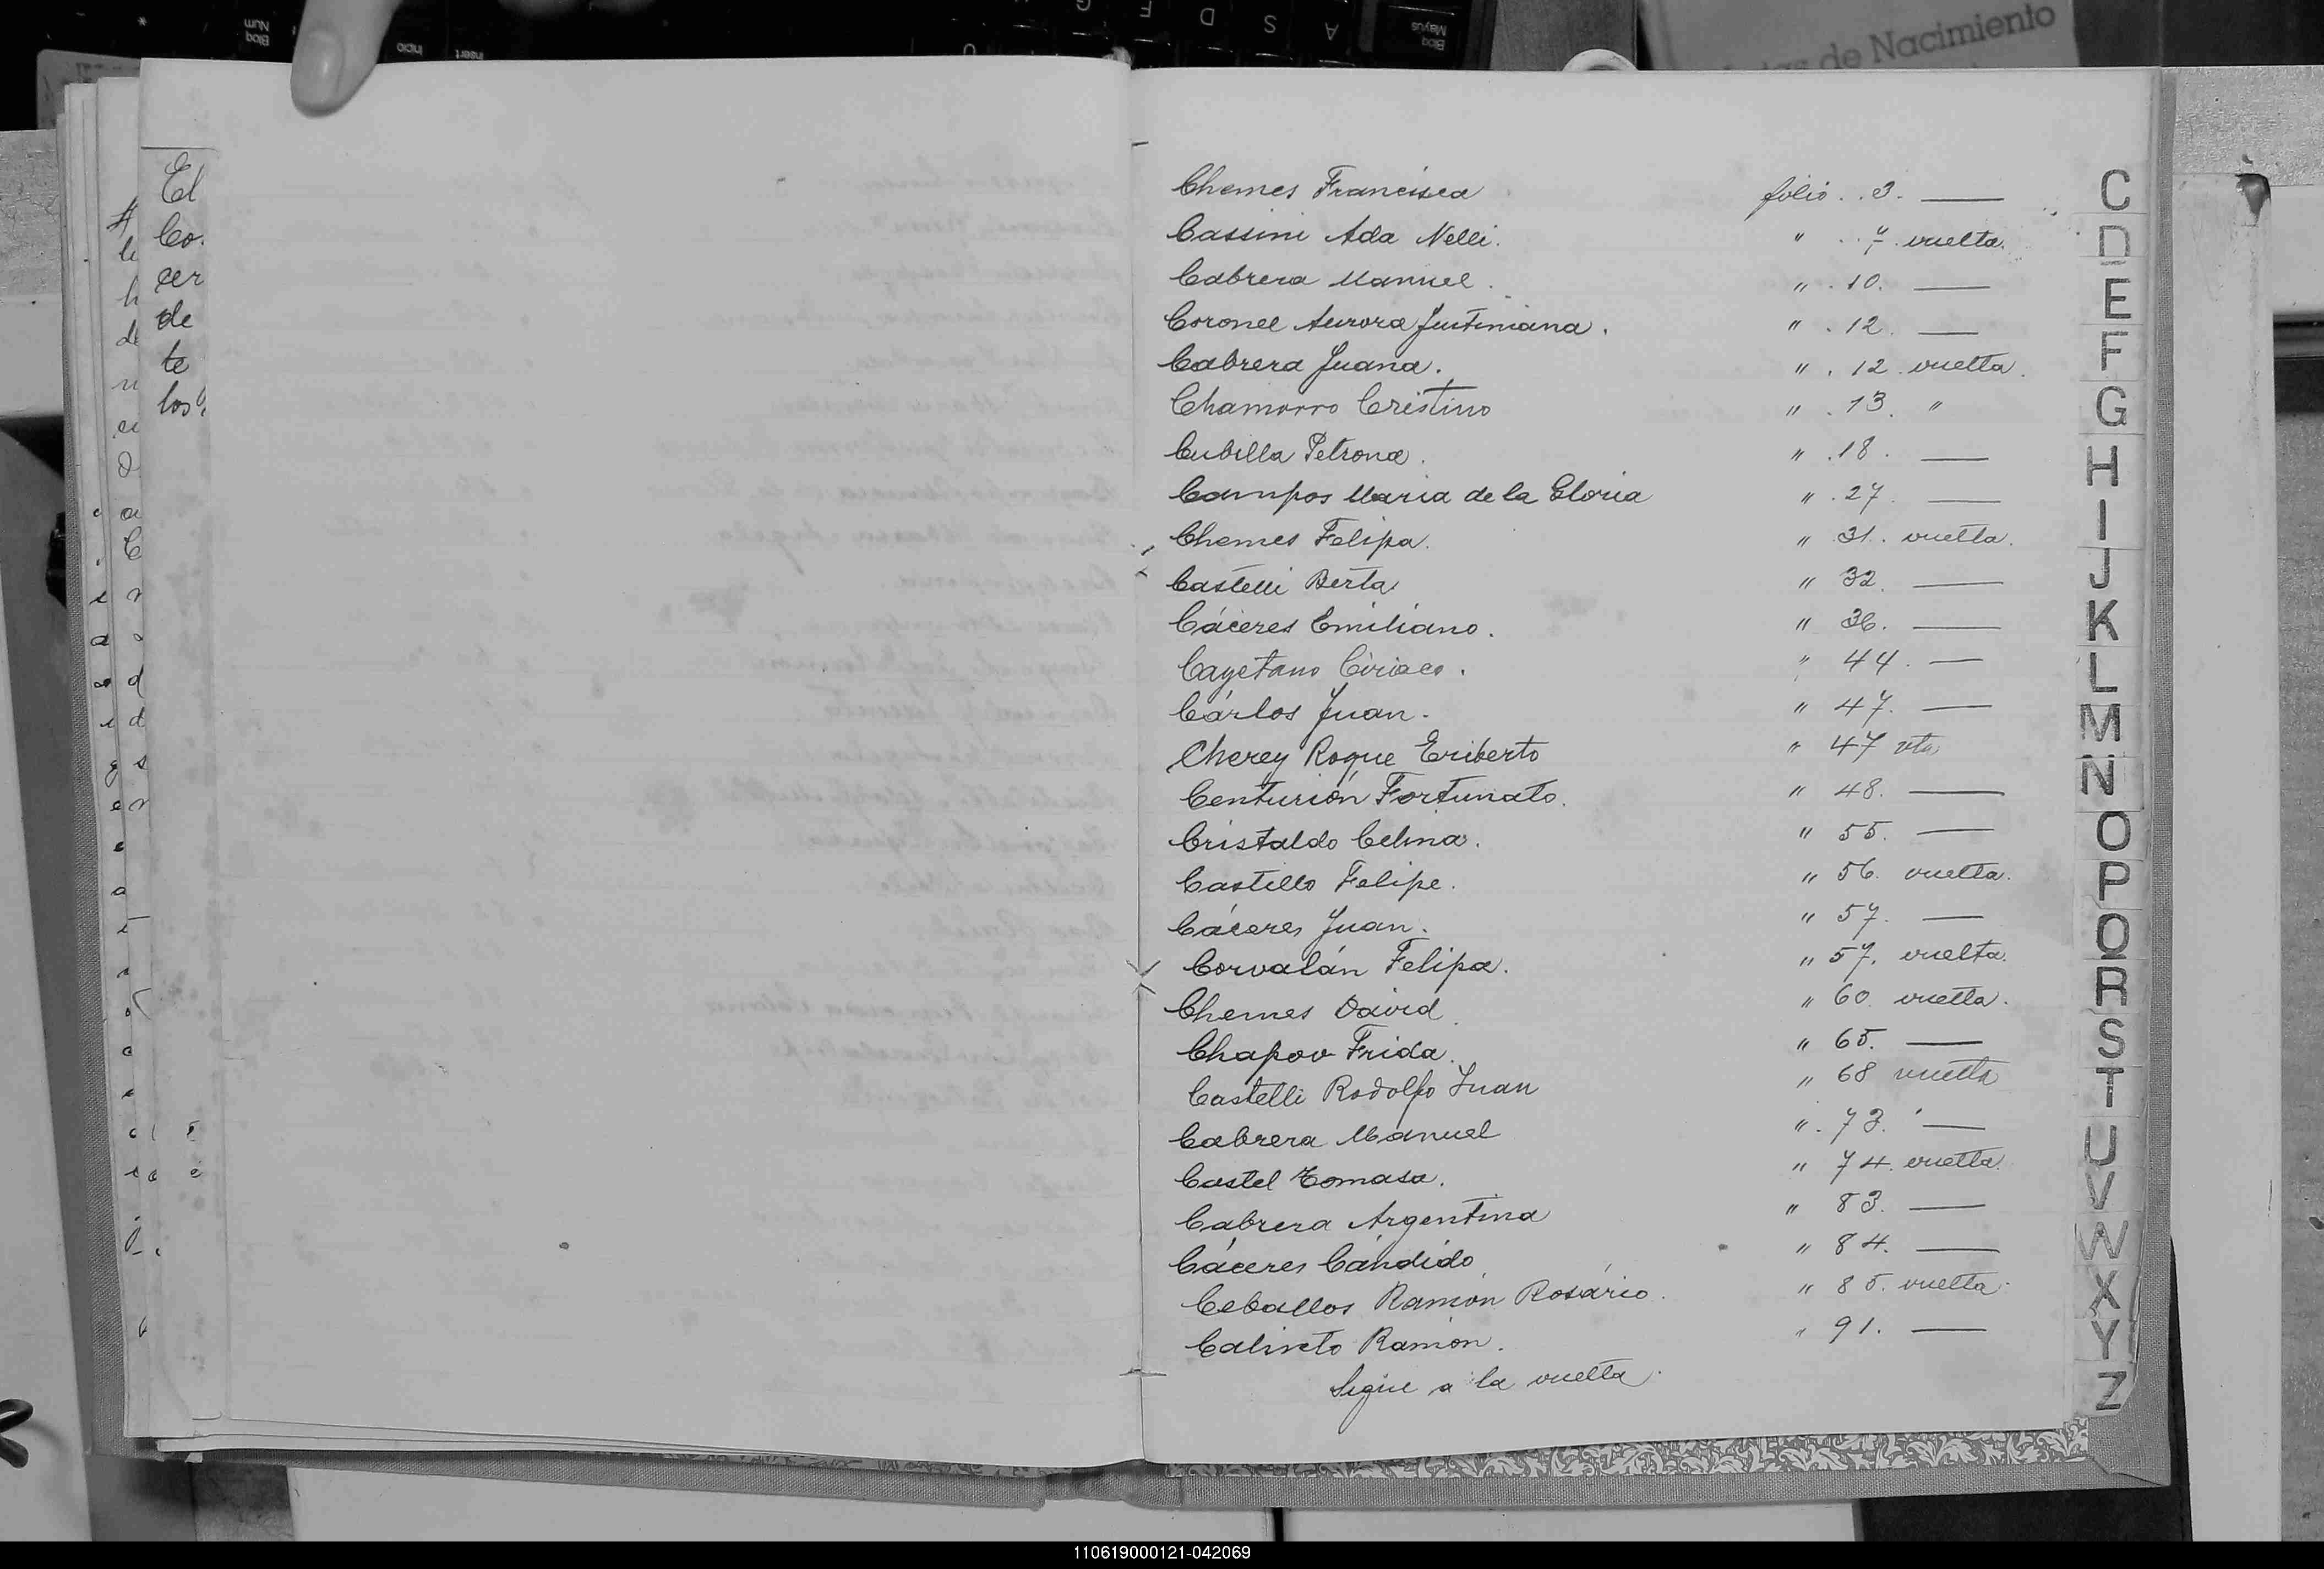 de Nacimiento
El
Co.
cer
de
te
los
Chemes Francisca folio . . 3. —
Cassini Ada Nelli. " . . 7. vuelta.
Cabrera Manuel. " . 10. —
Coronel Aurora Justiniana. " . 12. —
Cabrera Juana. " . 12 vuelta.
Chamorro Cristino " . 13. "
Cubilla Petrona. " . 18. —
Campos Maria de la Gloria " . 27. —
Chemes Felipa. " 31. vuelta.
Castelli Berta. " 32. —
Cáceres Emiliano. " 36. —
Cayetano Ciriaco. " 44. —
Cárlos Juan. " 47. —
Cherey Roque Eriberto " 47 vta
Centurión Fortunato. " 48. —
Cristaldo Celina. " 55. —
Castillo Felipe. " 56. vuelta.
Cáceres Juan. " 57. —
Corvalán Felipa. " 57. vuelta.
Chemes David. " 60. vuelta.
Chapov Frida. " 65. —
Castelli Rodolfo Juan " 68 vuelta
Cabrera Manuel " . 73. —
Castel Tomasa. " 74. vuelta.
Cabrera Argentina " 83. —
Cáceres Cándido " 84. —
Ceballos Ramón Rosário. " 85. vuelta.
Calixto Ramón. " 91. —
Sigue a la vuelta.
C
D
E
F
G
H
I
J
K
L
M
N
O
P
Q
R
S
T
U
V
W
X
Y
Z
110619000121-042069